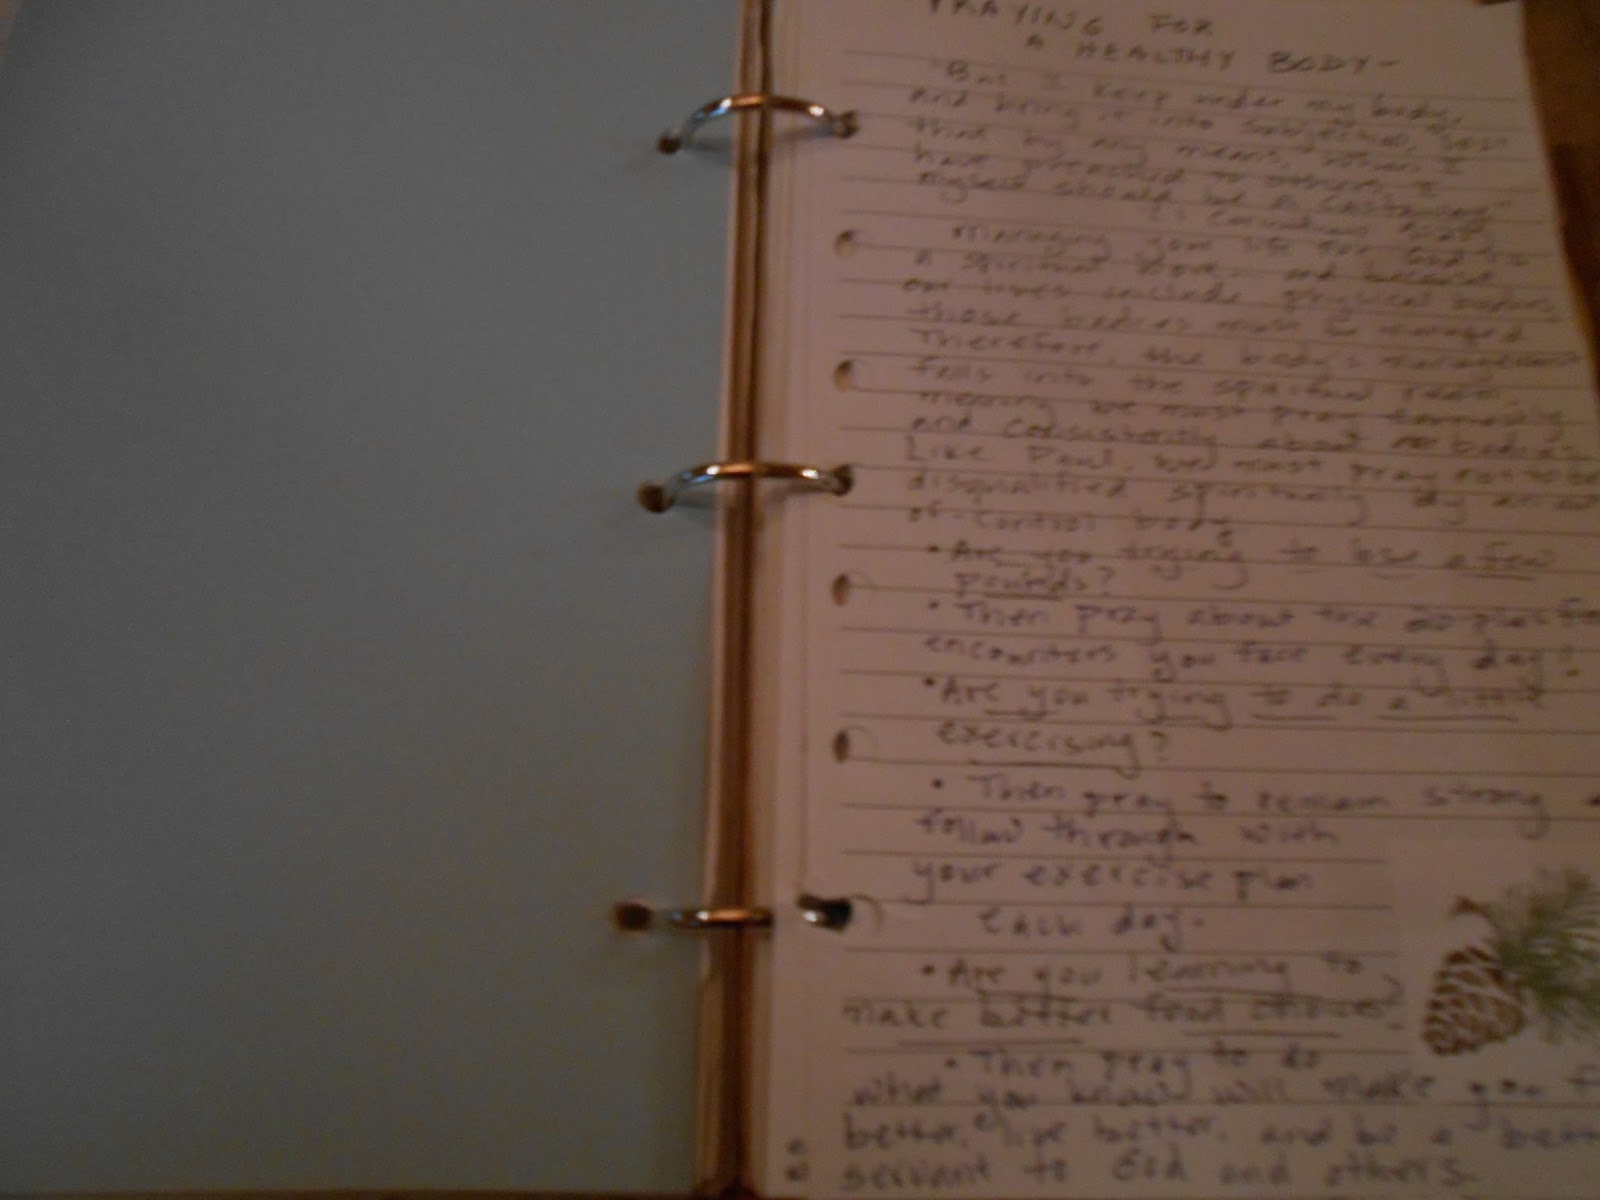 PRAYING FOR
A HEALTHY BODY-
"But I keep under my body,
and bring it into subjection, lest
that by any means, when I
have preached to others, I
myself should be a castaway."
Corinthians
Managing your life for God is
a spiritual work, and because
our lives include physical bodies,
those bodies must be managed.
Therefore, the body's management
falls into the spiritual realm,
meaning we must pray
and consistently about our bodies.
Like Paul, we must pray not to be
disqualified spiritually by an out
of-control body.
• Are you trying to lose a few
pounds?
• Then pray about the food
encounters you face every day!
• Are you trying to do a little
exercising?
• Then pray to remain strong
follow through with
your exercise plan
each day.
• Are you learning to
make better food choices.
• Then pray to do
what you know will make you
better, live better, and be a better
servant to God and others.